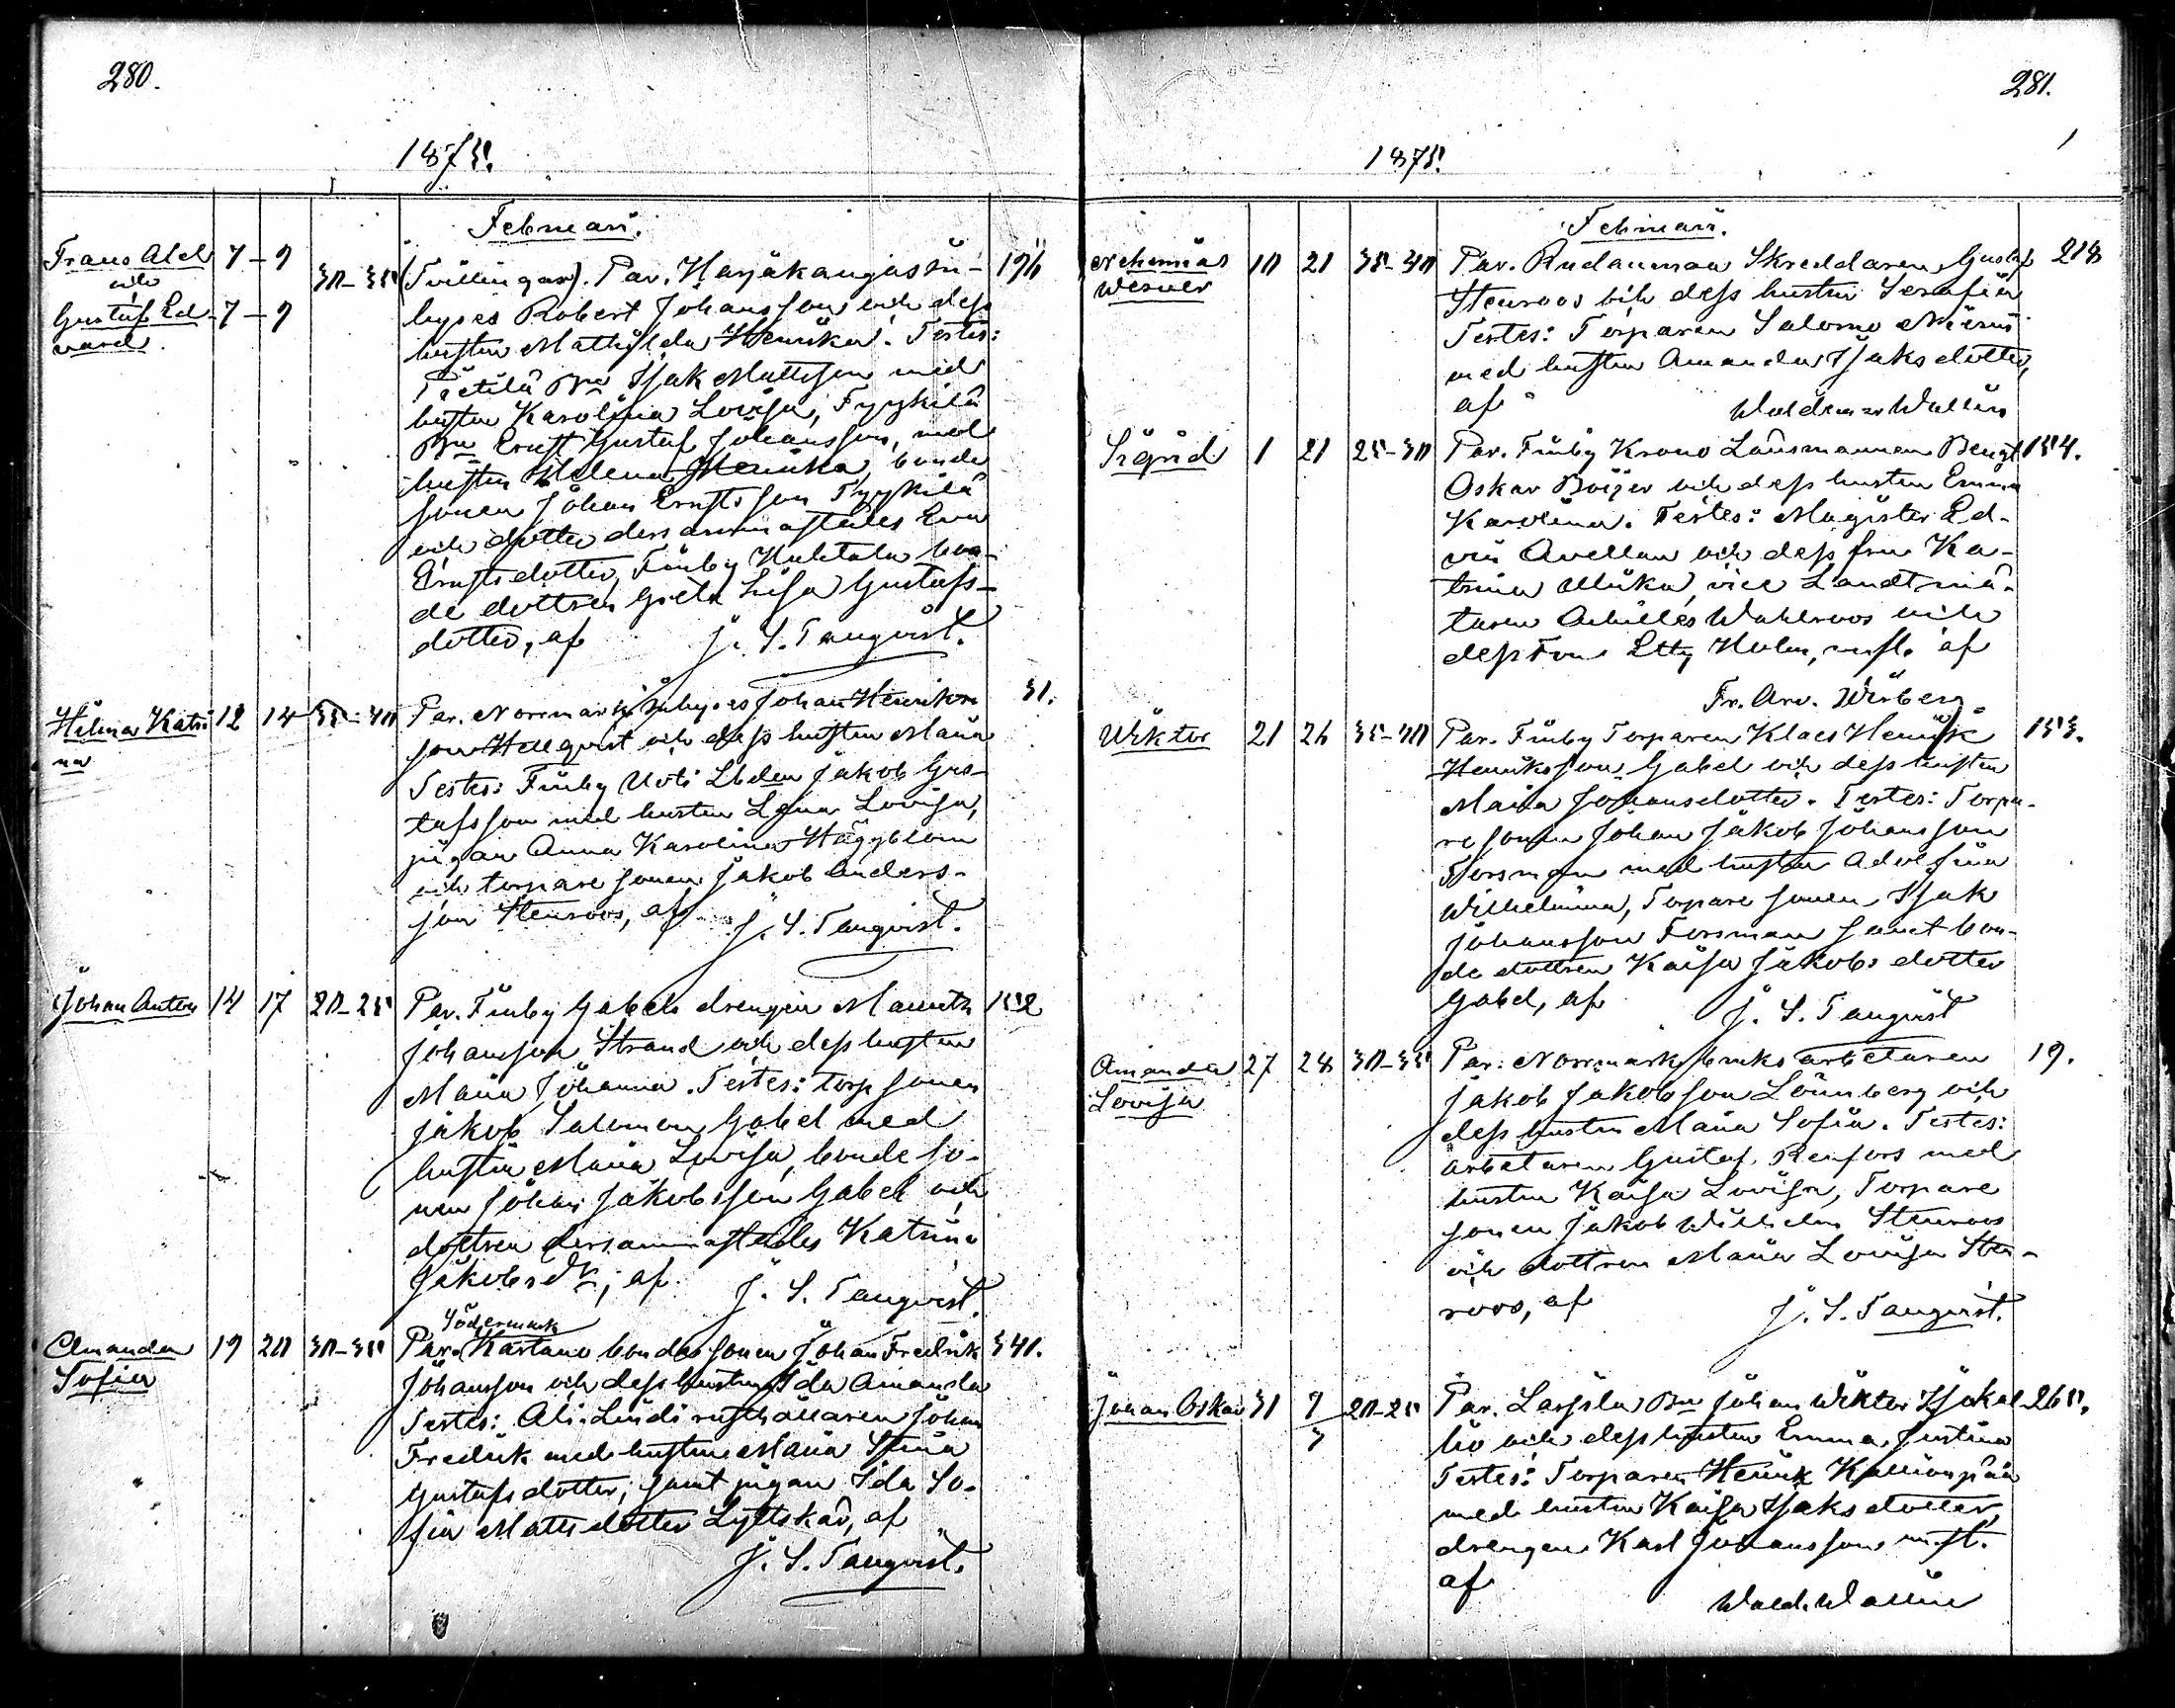 280.
1875.
Februari.
Frans Abel 7 - 9 30-35 (Tvillingar). Par. Harjakangas in- 196
och
hyses Robert Johansson och dess
Gustaf Ed- 7 - 9
vard
hustru Mathilda Henrika. Testes:
Bde Isak Mattsson med
hustru Karolina Lovisa, Fyykilä
Bde Ernst Gustaf Johansson, med
hustru Helena Henrika, bonde
sonen Johan Ernstsson Fyykilä
och dotter dersammastädes Eva
Ernstsdotter, Finby Huhtala bon-
de dottren Greta Lisa Gustafs-
dotter, af J. S. Tanqvist.
Hilma Katri 12 14 35-40 Par. Norrmark inhyses Johan Henriks 31.
na
son Hellqvist och dess hustru Maria
Testes: Finby Uoti Lbden Jakob Gus-
tafsson med hustru Lena Lovisa,
pigan Anna Karolina Häggblom
och torpare sonen Jakob Anders-
son Stenroos, af J. S. Tanqvist.
Johan Anton 14 17 20-25 Par. Finby Gabels drengen Mauritz 152
Johansson Strand och dess hustru
Maria Johanna. Testes: torp sonen
Jakob Salomon Gabel med
hustru Maria Lovisa, bonde so-
nen Johan Jakobsson Gabel och
dottren dersammastädes Katrina
Jakobsdr, af J. S. Tanqvist.
Södermark
Amanda 19 20 30-35 Par. Kartano bonde sonen Johan Fredrik 341.
Sofia
Johansson och dess hustru Ida Amanda
Testes: Ali-Lindi rusthållaren Johan
Fredrik med hustru Maria Stina
Gustafsdotter, samt pigan Ida So-
fia Mattsdotter Lyttskär, af
J. S. Tanqvist.
281.
1875.
Februari.
Nehemias 10 21 35-40 Par. Rudanmaa Skreddaren Gustaf 218
Werner
Stenroos och dess hustru Serafia
Testes: Torparen Salomo
med hustru Amanda Isaksdotter,
af Waldemar Wallin
Sigrid 1 21 25-30 Par. Finby Krono Länsmannen Bengt 154.
Oskar Böijer och dess hustru Emma
Karolina. Testes: Magister Ed-
vin Avellan och dess fru Ka-
trina Ulrika, vice Landtmä-
taren Achilles Wahlroos och
dess Fru Etty Holm, mfl. af
Fr. Arv. Wiberg.
Wiktor 21 26 35-40 Par. Finby Torparen Klaes Henrik 153.
Henriksson Gabel och dess hustru
Maria Johansdotter. Testes: Torpa-
re sonen Johan Jakob Johansson
Forsman med hustru Adolfina
Wilhelmina, Torpare sonen Isak
Johansson Forsman samt bon-
de dottren Kaisa Jakobsdotter
Gabel, af J. S. Tanqvist
Amanda 27 28 30-35 Par. Norrmark bruks arbetaren 19.
Lovisa
Jakob Jakobsson Lönnberg och
dess hustru Maria Sofia. Testes:
arbetaren Gustaf Renfors med
hustru Kaisa Lovisa, Torpare
sonen Jakob Wilhelm Stenroos
och dottren Maria Lovisa Sten-
roos, af J. S. Tanqvist.
Johan Oskar 31 7/3 20-25 Par. Lassila Bde Johan Wiktor Isakal- 265.
lio och dess hustru Emma Justina
Testes: Torparen Henrik Kallionpää
med hustru Kaisa Isaksdotter,
drengen Karl Johansson m.fl.
af
Wald. Wallin